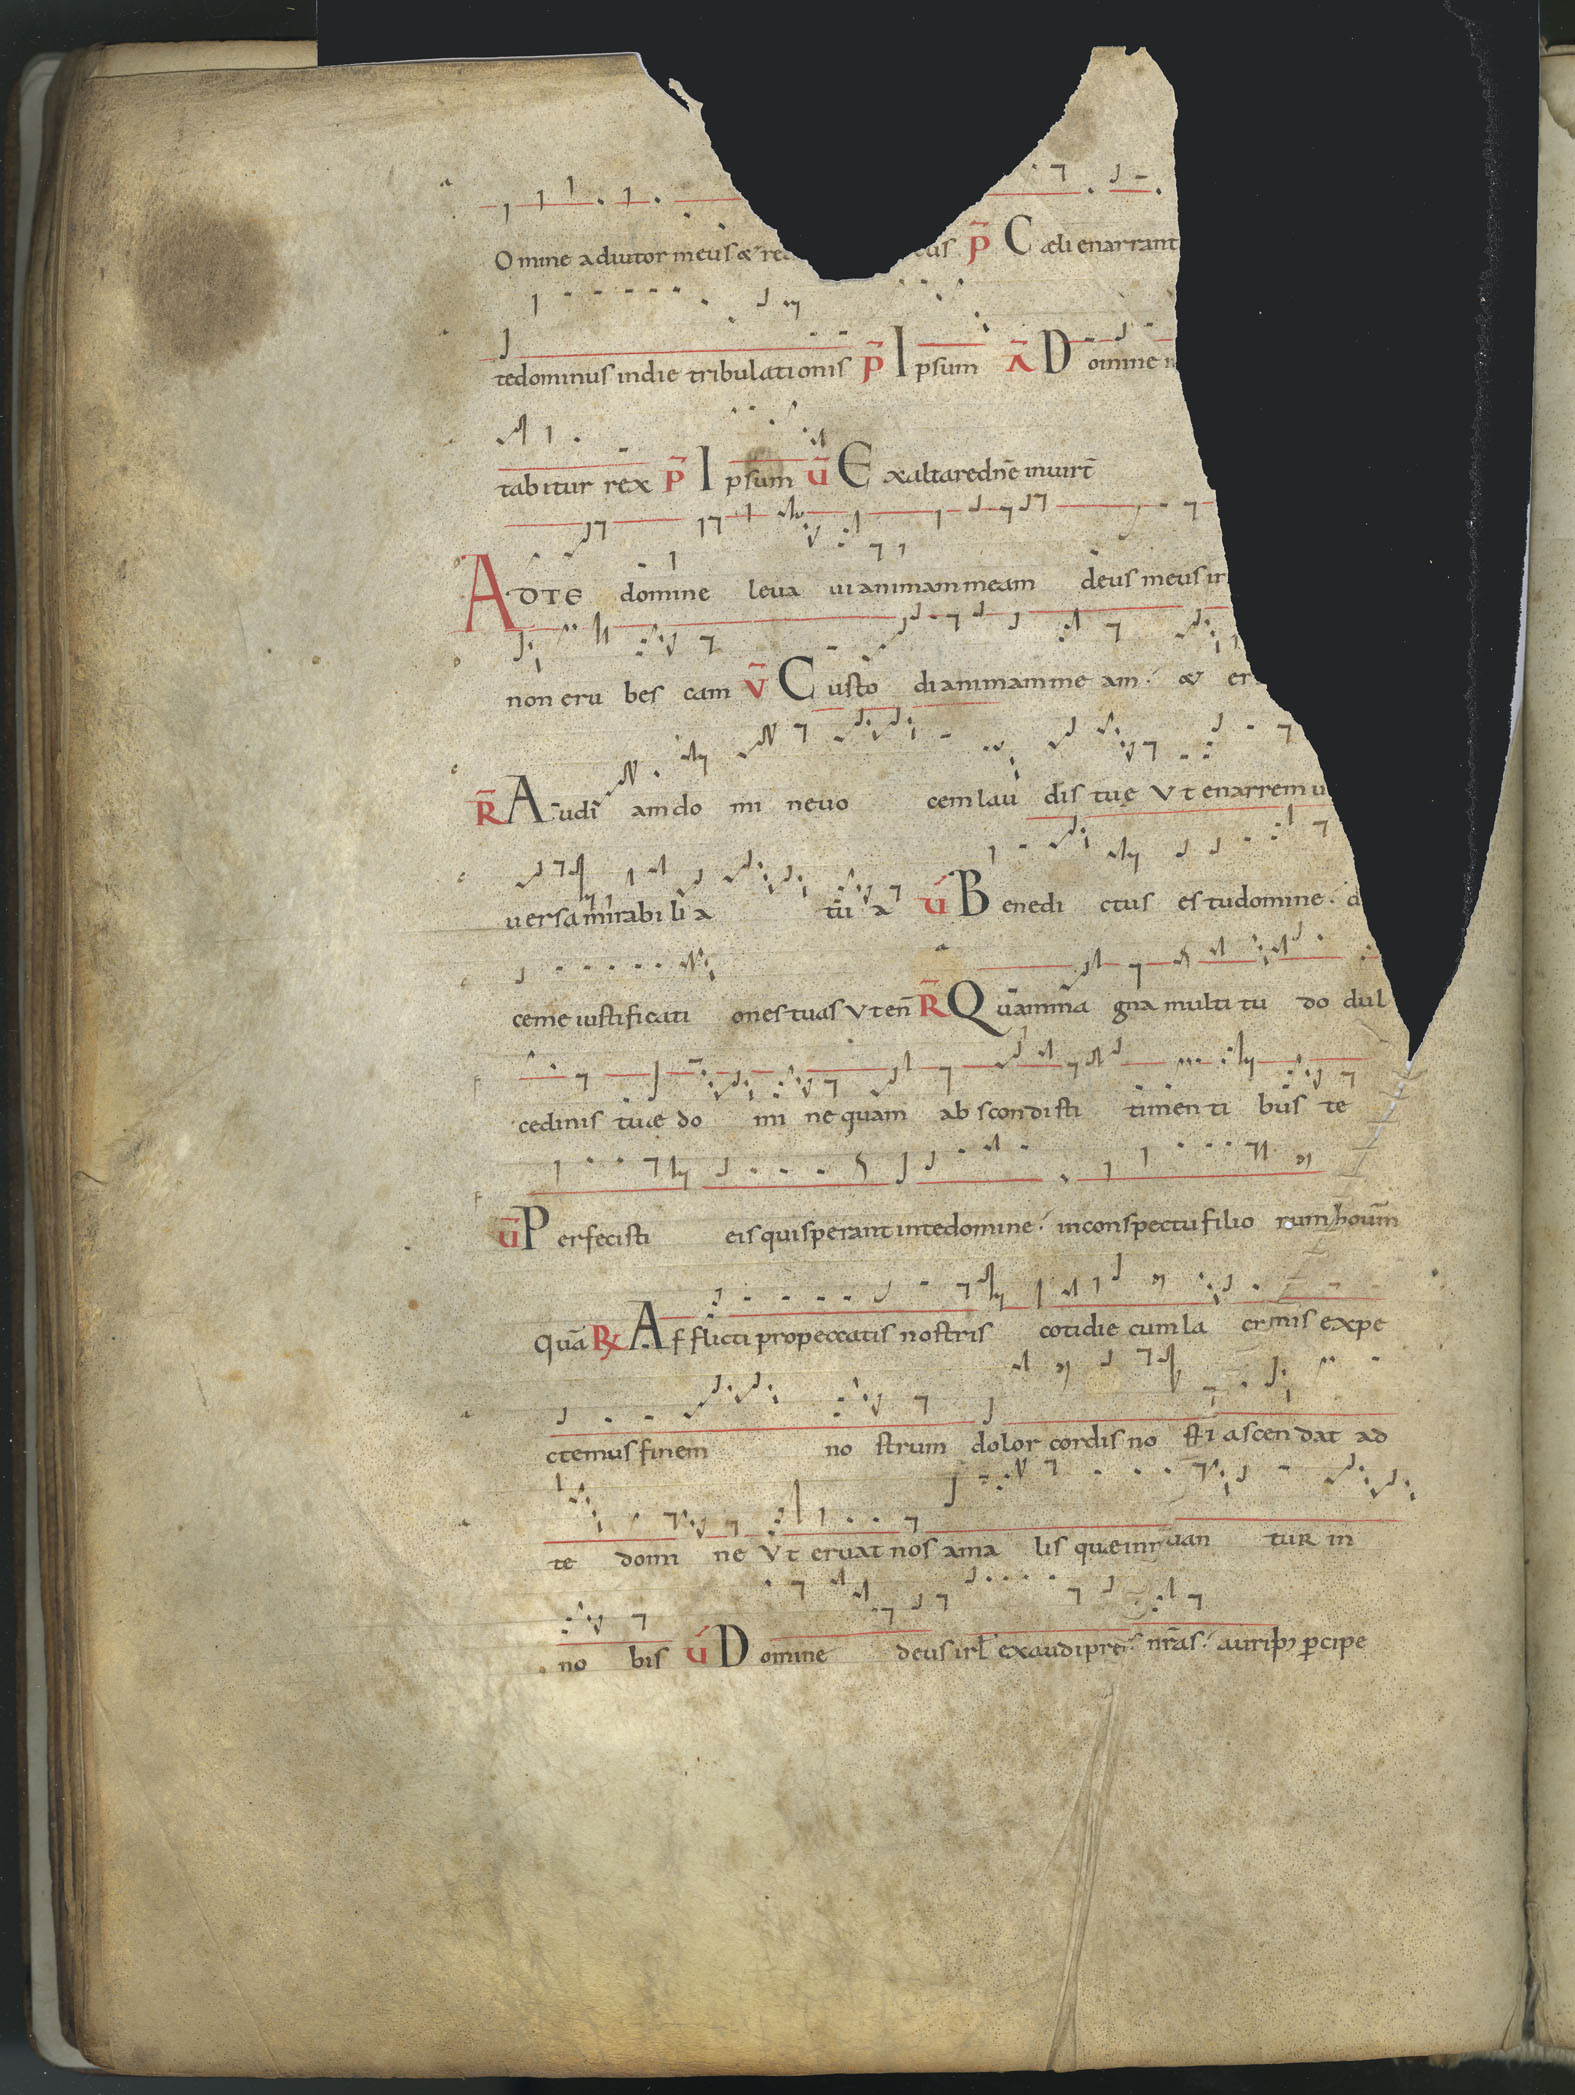 Omine adiutor meus & re eus p Cæli enarrant
te dominus in die tribulationis p Ipsum A Domine
tabitur rex p Ipsum ū Exaltare dn̄e in uirt̄
ADTE domine leua ui animam meam deus meus in
non eru bes cam v̄ Custo di animam me am & er
R̄ Audi am do mi ne uo cem lau dis tuę Vt enarrem u
uersa mirabi li a tu a ū Benedi ctus es tu domine d
ceme iustificati ones tuas Vt en̄ R̄ Quam ma gna multi tu do dul
cedinis tuæ do mi ne quam ab scondisti timen ti bus te
ū Perfecisti eis qui sperant in te domine in conspectu filio rum houm̄
Quā R Afflicti pro peccatis nostris cotidie cum la crimis expe
ctemus finem no strum dolor cordis no stri ascendat ad
te domi ne Vt eruat nos a ma lis quæ innouan tur in
no bis ū Domine deus irl̄ exaudi preces nr̄as aurib; ꝑcipe